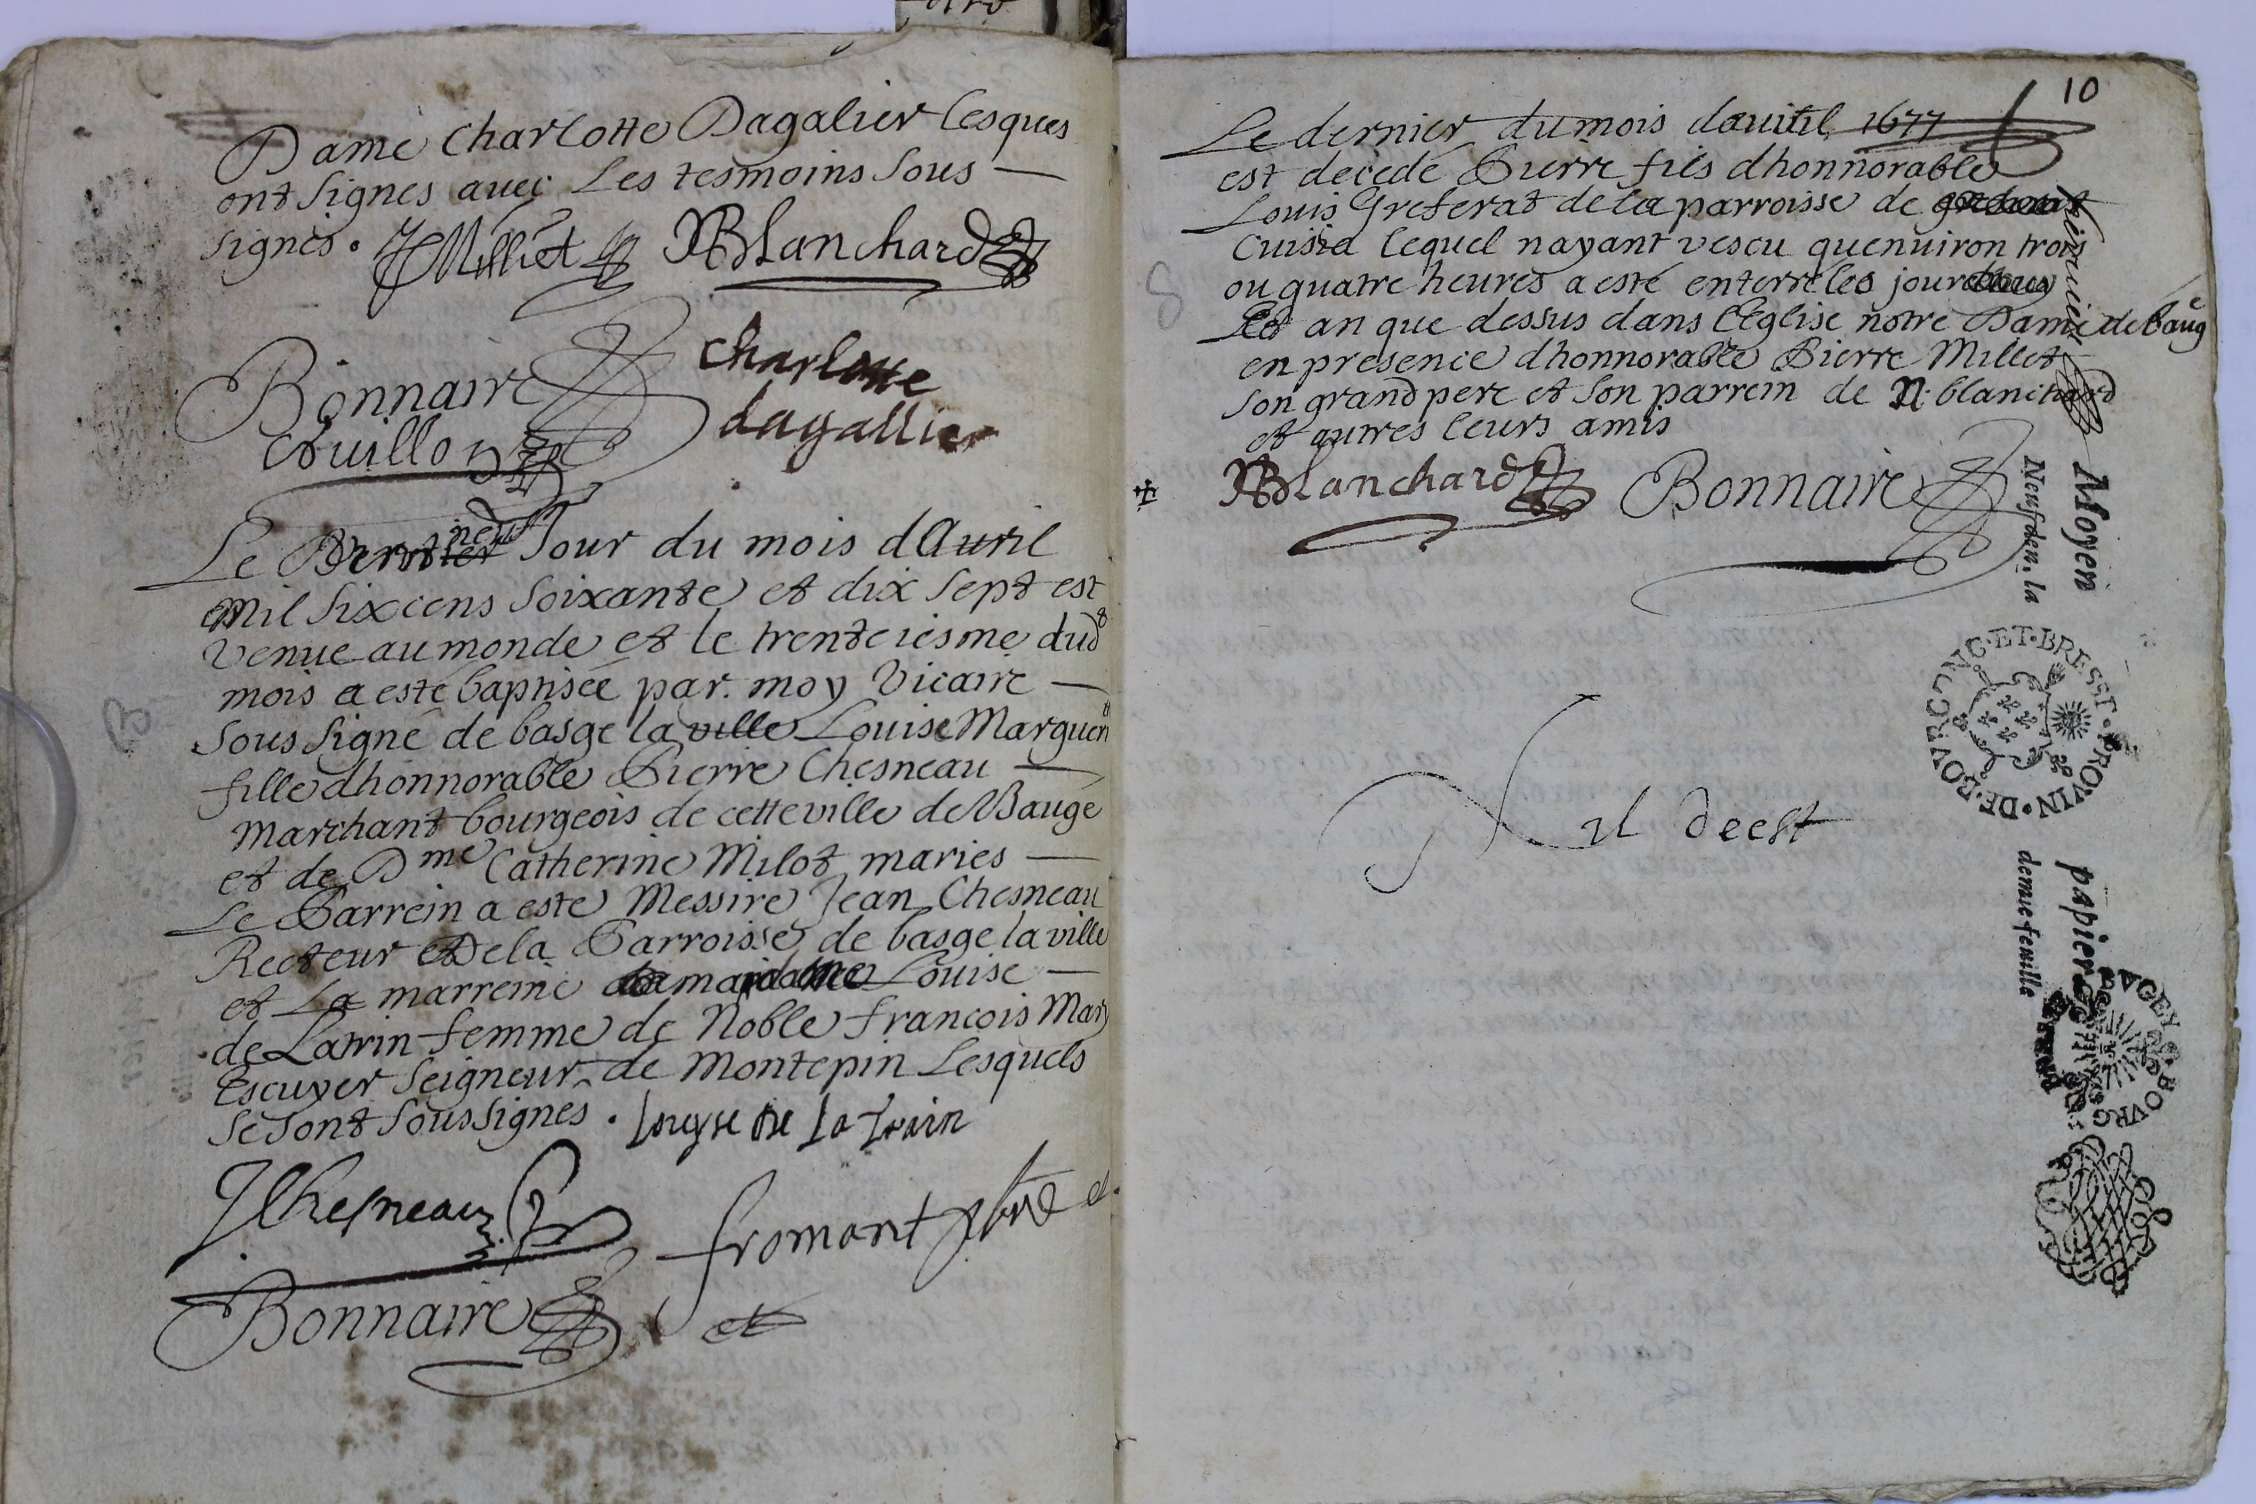 Dame Charlotte Dagalier lesques
ont signes avec Les tesmoins sous
signes. Milliet NBlanchard
Bonnaire charlotte
Couillon dagallier
Le neuf Jour du mois dAuril
Mil six cens soixante et dix sept est
venue au monde et le trentciesme dud
mois a esté baptisée par moy Vicaire
sous signé de basge la ville Louise Marguerite
fille dhonnorable Pierre Chesneau
Marchant bourgeois de cette ville de Baugé
et de Dme Catherine Milot maries
Le Parrein a esté Messire Jean Chesneau
Recteur De la Parroisse de basge la ville
et La marreine Louise
de Latrin femme de Noble francois Mary
Escuyer seigneur de Montepin Lesquels
se sont soussignés. Louyse De La Train
JChesneau fromant pbre
Bonnaire
10
Le dernier du mois dauril 1677
est decede Pierre fils dhonnorable
Louis Greferat de la parroisse de
Cuisia lequel nayant vescu quenuiron trois
ou quatre heures a esté enterré les jour
et an que dessus dans lEglise notre Dame de baugé
en presence dhonnorable Pierre Millot
son grand pere et son parrein de N. blanchard
et autres leurs amis
NBlanchard Bonnaire
Nil deest
Moyen papier
Neuf den. la demie feuille
DE·BOVRGONG·ET·BRESSE·PROVIN·
AGEY·BOVRG